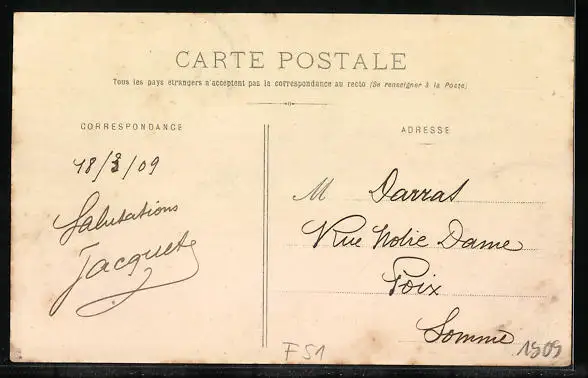 CARTE POSTALE
Tous les pays étrangers n'acceptent pas la correspondance au recto (Se renseigner à la Poste)
CORRESPONDANCE
18/3/09
Salutations
Jacquet
ADRESSE
M Darras
Rue Notre Dame
Poix
Somme
F51
1909